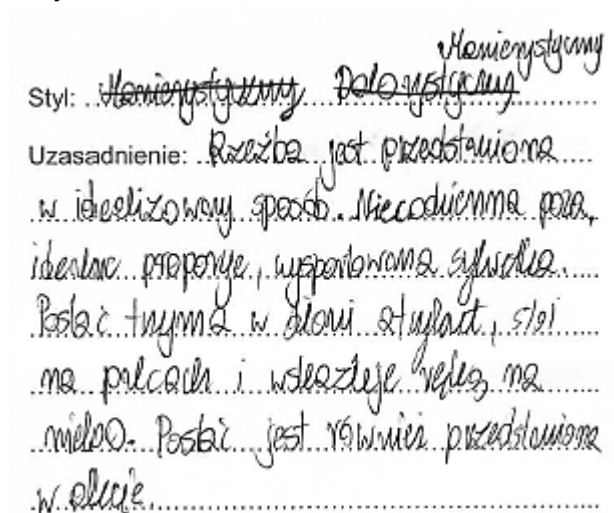 Manierystyczny
Styl: Manierystyczny
Uzasadnienie: Rzeźba jest przedstawiona
w idealizowany sposób. Niecodzienna poza,
idealne proporcje, wysportowana sylwetka.
Postać trzyma w dłoni atrybut, stoi
na palcach i wskazuje ręką na
niebo. Postać jest również przedstawiona
w akcie.